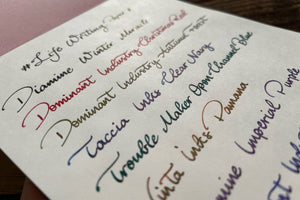 # Life Writing Paper
Diamine Winter Miracle
Dominant Industry Christmas Red
Dominant Industry Autumn
Taccia Inks Clear Navy
Trouble Maker Open Channel Blue
Vinta Inks Panana
Diamine Imperial Purple